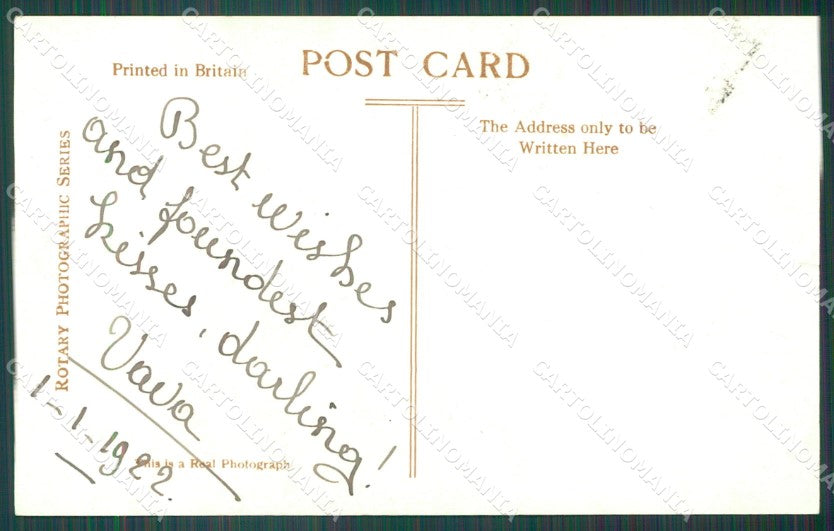 POST CARD
Printed in Britain
The Address only to be
Written Here
ROTARY PHOTOGRAPHIC SERIES
Best wishes
and foundest
kisses, darling!
Vava
1-1-1922.
This is a Real Photograph
CARTOLINOMANIA